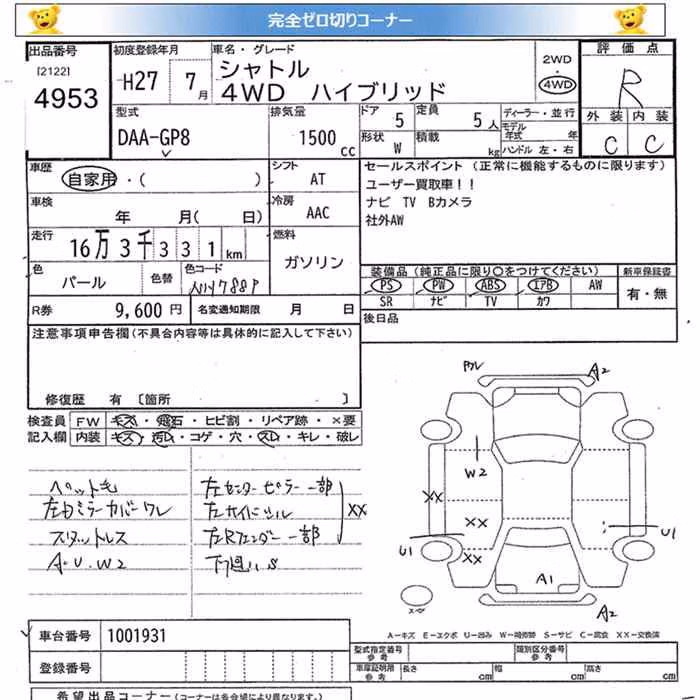 完全ゼロ切りコーナー
出品番号
[2122]
4953
初度登録年月
H27 7月
車名・グレード
シャトル
4WD ハイブリッド
2WD
4WD
評価点
R
外装 内装
C C
型式
DAA-GP8
排気量
1500 cc
ドア 5
定員 5人
形状 W
積載 kg
ディーラー・並行
モデル年式 年
ハンドル 左・右
車歴
自家用・( )
シフト
AT
車検
年 月( 日)
冷房
AAC
走行
16万3千331km
燃料
ガソリン
色
パール
色替
色コード
NH788P
R券
9,600円
名変通知期限 月 日
セールスポイント (正常に機能するものに限ります)
ユーザー買取車!!
ナビ TV Bカメラ
社外AW
装備品(純正品に限り○をつけてください)
PS PW ABS エアB AW
SR ナビ TV カワ
新車保証書
有・無
後日品
注意事項申告欄(不具合内容等は具体的に記入して下さい)
修復歴 有 〔箇所 〕
検査員記入欄
FW キズ・飛石・ヒビ割・リペア跡・×要
内装 キズ・汚れ・コゲ・穴・スレ・キレ・破レ
ペット毛
左ドミラーカバーワレ
スタットレス
A・U・W2
左センターピラー一部
左サイドシル
左Rフェンダー一部
XX
下廻りS
ワレ
A2
W2
XX
XX
XX
U1
U1
A1
A2
A-キズ E-エクボ U-凹み W-補修跡 S-サビ C-腐食 XX-交換済
車台番号
1001931
登録番号
型式指定番号
参考
類別区分番号
参考
車庫証明用
参考
長さ cm
幅 cm
高さ cm
希望出品コーナー(コーナーは各会場により異なります。)